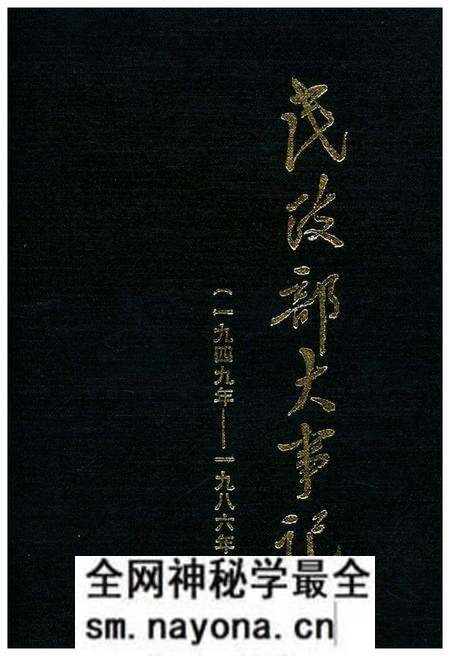 民政部大事记
(一九四九年——一九八六年
全网神秘学最全
sm.nayona.cn